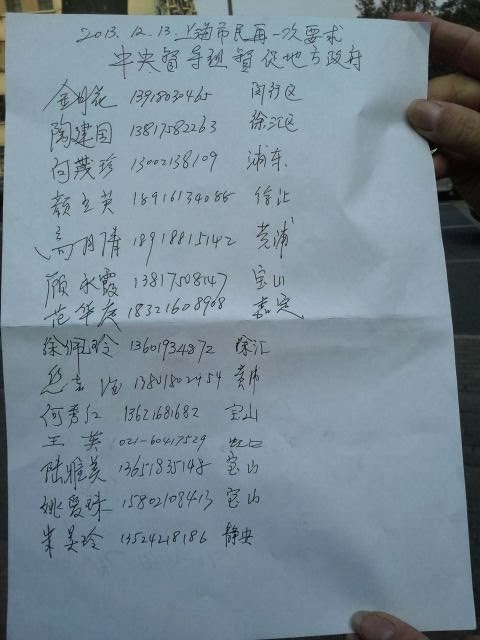 2013.12.13.上海市民再一次要求
中央督导组督促地方政府
金月花 13918030465 闵行区
陶建国 13817582263 徐汇区
何茂珍 13002138109 浦东
颜立英 18916134088 徐汇
高月清 18918815142 黄浦
顾水霞 13817508147 宝山
范华庚 18321608908 嘉定
徐佩玲 13601934872 徐汇
13801802454 黄浦
何秀红 13621681682 宝山
王英 021-60417529 虹口
陆雅美 13651835148 宝山
姚爱珠 15802108413 宝山
朱美玲 13524218186 静安